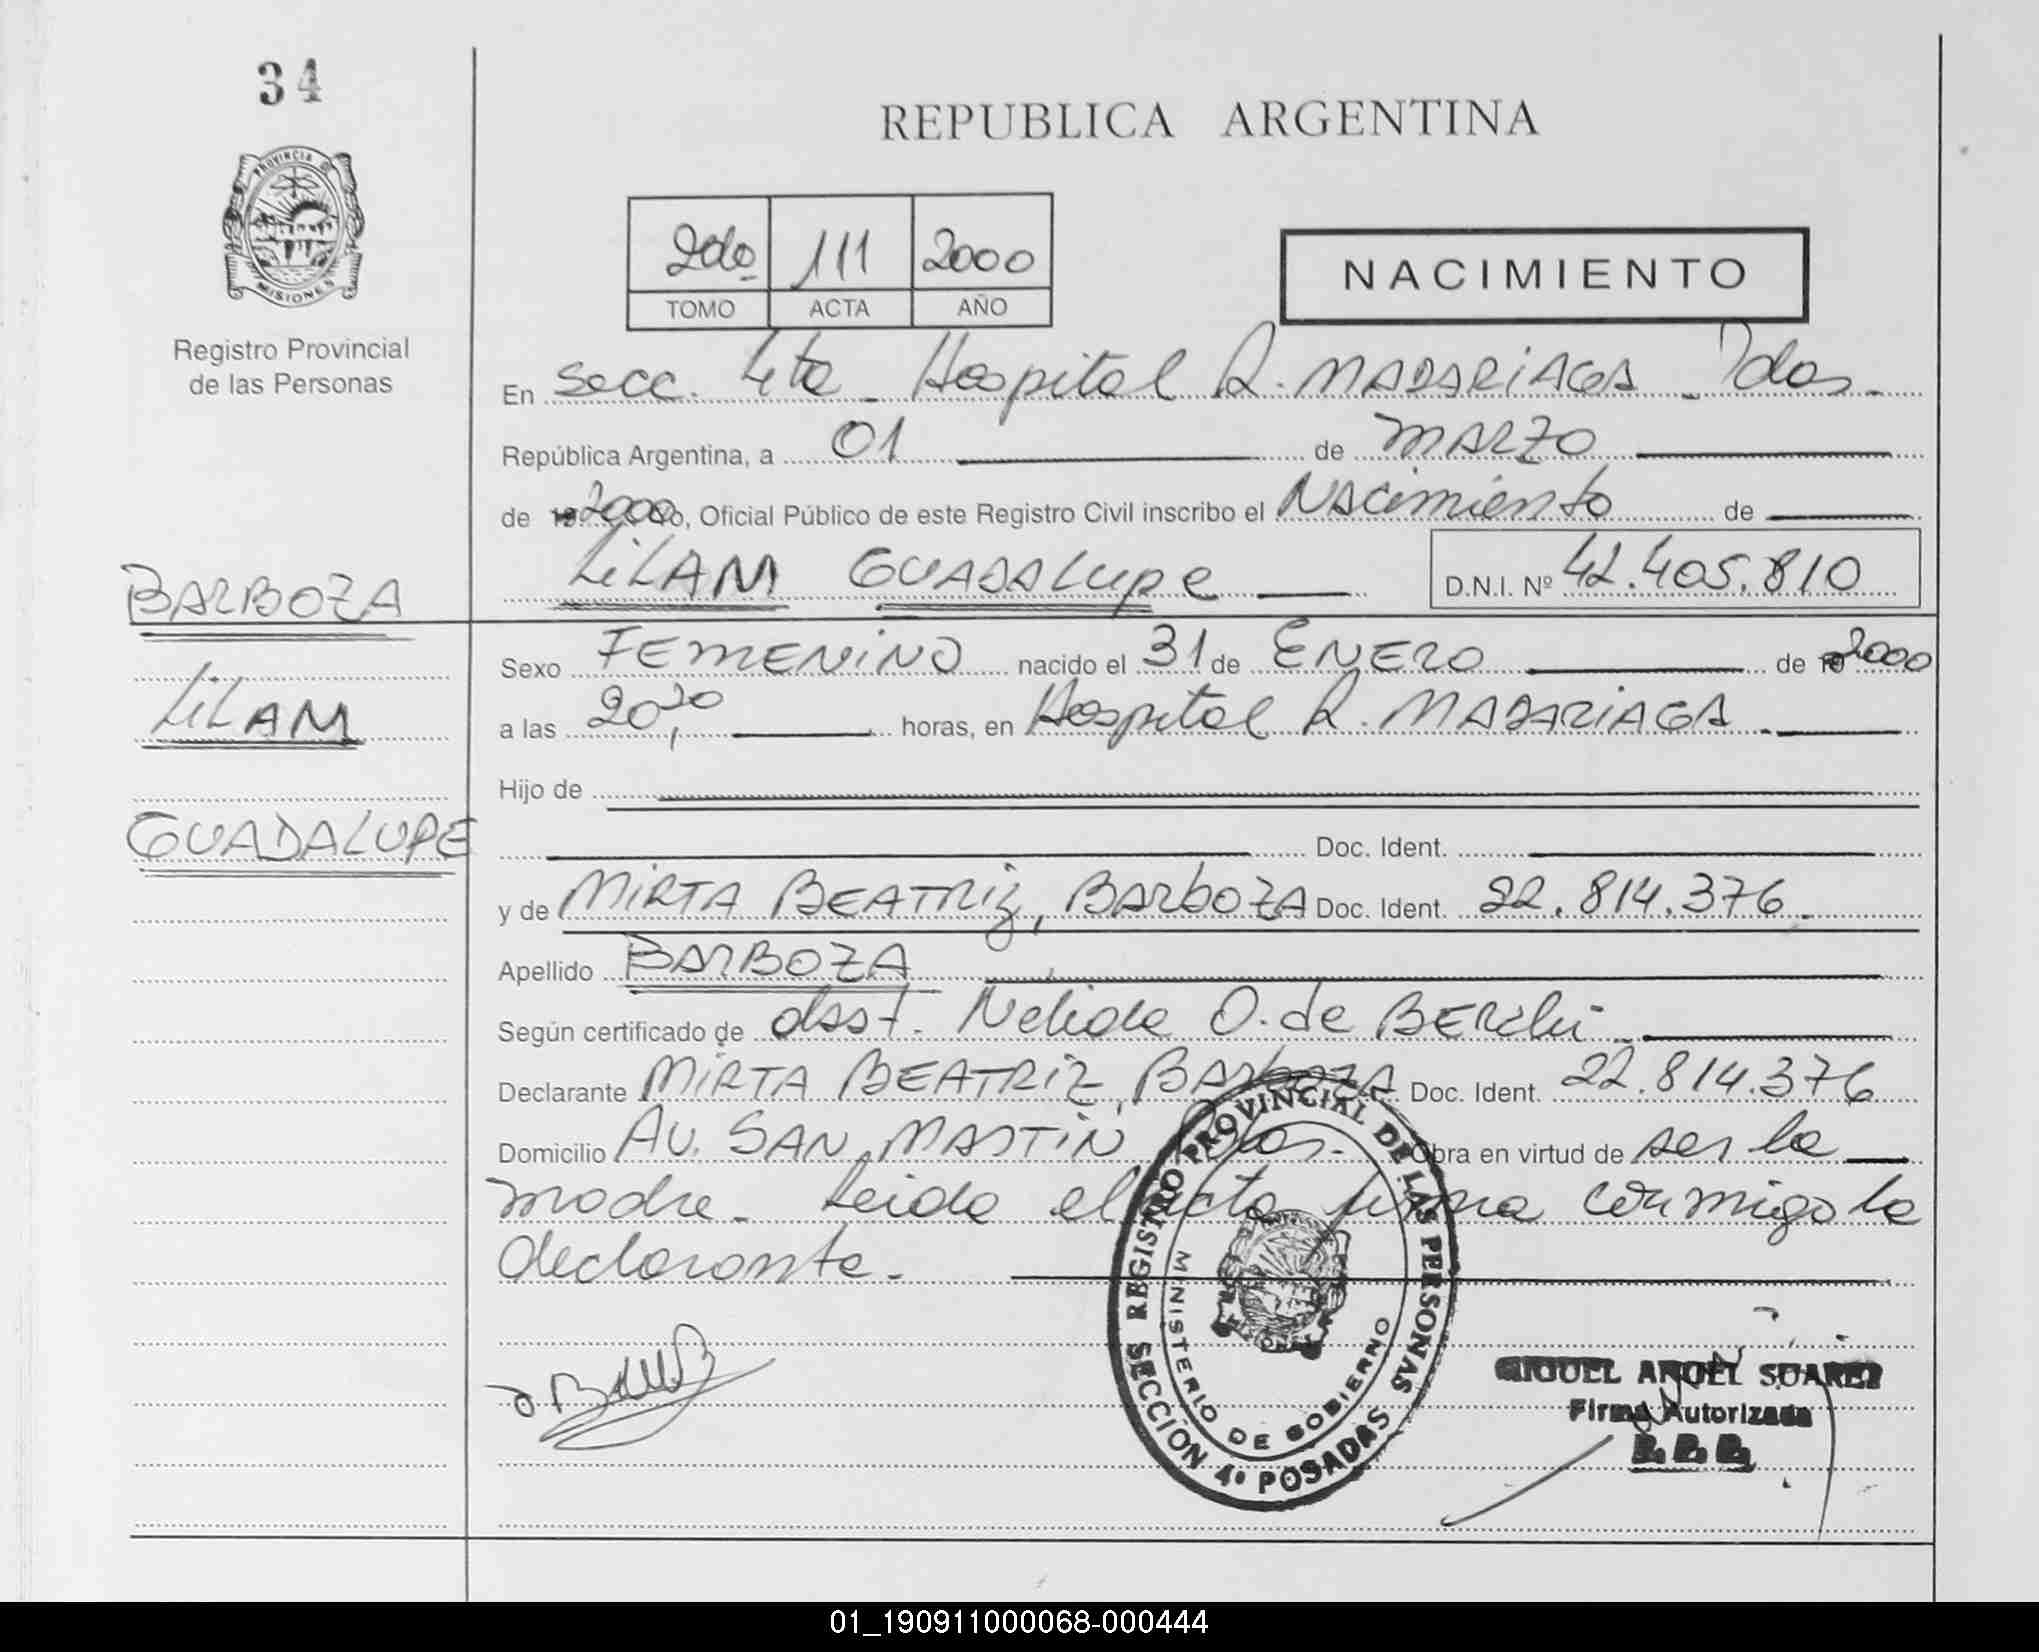 34
PROVINCIA D
MISIONES
Registro Provincial
de las Personas
REPUBLICA ARGENTINA
2do 111 2000
TOMO ACTA AÑO
NACIMIENTO
En Secc. 4ta Hospital R. MADARIAGA - Pdas.
República Argentina, a 01 de MARZO
de 19 2000 yo, Oficial Público de este Registro Civil inscribo el Nacimiento de
LiLAM GUADALUpe D.N.I. Nº 42.405.810
BARBOZA
LiLAM
GUADALUPE
Sexo FEMENiNO nacido el 31 de ENERO de 2000
a las 20, horas, en Hospital R. MADARIAGA.
Hijo de
Doc. Ident.
y de MiRTA BEATRiz, BARbOZA Doc. Ident. 22.814.376.
Apellido BARBOZA
Según certificado de Nelida O. de
Declarante MiRTA BEATRiZ, BARbOZA Doc. Ident. 22.814.376
Domicilio AV. SAN MARTiN Pdas. Obra en virtud de ser la
madre. Leida el acta firma conmigo la
declarante.
REGISTRO PROVINCIAL DE LAS PERSONAS
MINISTERIO DE GOBIERNO
SECCIÓN 4ª POSADAS
MIGUEL ANGEL SUAREZ
Firma Autorizada
01_190911000068-000444